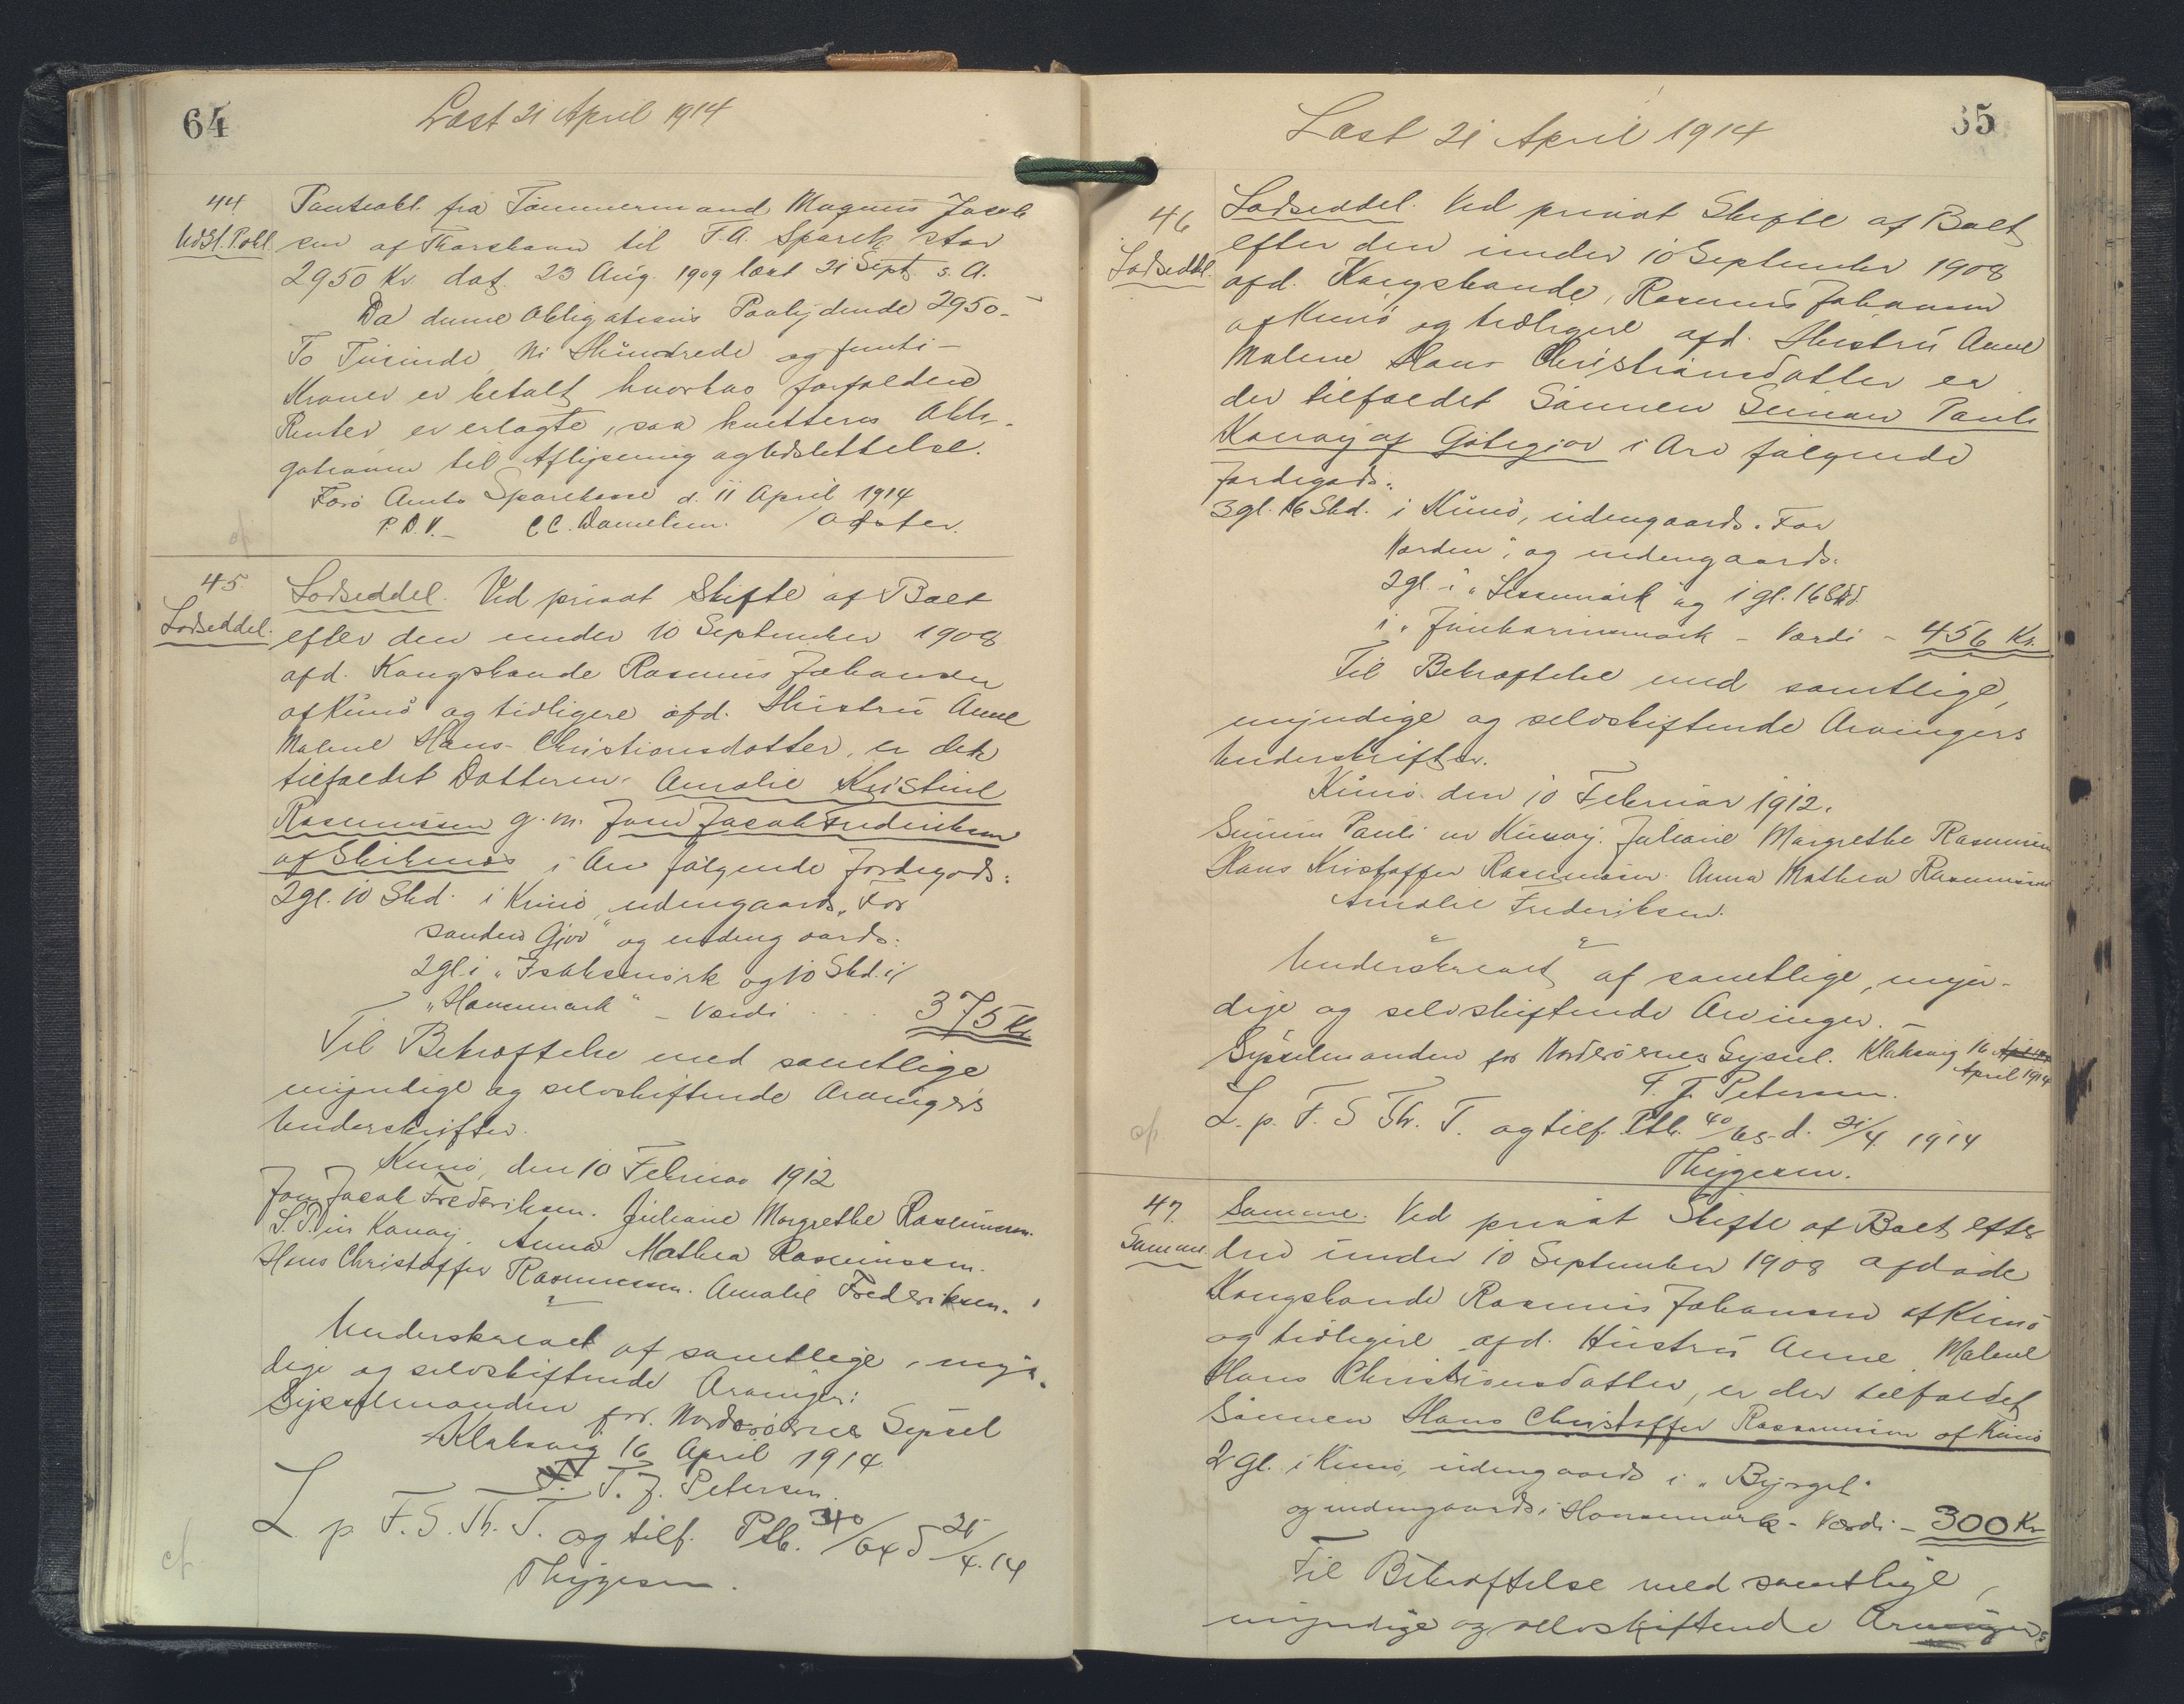 64
Læst 21 April 1914
44.
Udsl. Pobl.
Panteobl. fra Tømmermand Magnus Jacob
sen af Thorshavn til F.A. Sparek. stor
2950 Kr. dat. 23 Aug. 1909 læst 21 Sept. s. A.
Da denne Obligations Paalydende 2950-
To Tusinde Ni Hundrede og femti-
Kroner er betalt hvorhos forfaldene
Renter er erlagte, saa kvitteres Obli-
gationen til Aflysning og Udslettelse.
Færø Amts Sparekasse d. 11 April 1914
P.D.V. C.C. Danielsen. /
45.
Lodseddel.
Lodseddel. Ved privat Skifte af Boet
efter den under 10 September 1908
afd. Kongsbonde Rasmus Johansen
af Kunø og tidligere afd. Hustru Anne
Malene Hans-Christiansdatter, er det
tilfaldet Datteren. Amalie Kristine
Rasmussen g. m. Jens Jacob Frederiksen
af i Arv følgende Jordegods:
2gl. 10 Skd. i Kunø, udengaards, For
Sanden Gjov" og indengaards:
2gl. i "Isaksmørk og 10 Skd. i
"Hansmark" - Værdi . . . 375 Kr
Til Bekræftelse med samtlige
myndige og selvskiftende Arvingers
Underskrifter.
Kunø, den 10 Februar 1912
Jens Jacob Frederiksen. Juliane Margrethe Rasmussen.
S.P. úr Konoy. Anna Mathea Rasmussen.
Hans Christoffer Rasmussen. Amalie Frederiksen.
Underskrevet af samtlige, myn-
dige og selvskiftende Arvinger:
Sysselmanden for Norderøernes Syssel
Klaksvig 16 April 1914
T. J. Petersen.
L. p. F. S. Th. T. og tilf. Ptb. 340/64 d 21/4.14
Thygesen.
65
Læst 21 April 1914
46
Lodseddel.
Lodseddel. Ved privat Skifte af Boet
efter den under 10 September 1908
afd. Kongsbonde, Rasmus Johansen
af Kunø og tidligere afd. Hustru Anne
Malene Hans Christiansdatter er
der tilfaldet Sønnen Seimun Pauli
Konoy af Gøtegjov i Arv følgende
Jordegods:
3gl. 16 Skd. i Kunø, udengaards. For
Norden", og indengaards:
2gl. i " og 1 gl. 16 Skd.
i " - Værdi - 456 Kr.
Til Bekræftelse med samtlige,
myndige og selvskiftende Arvingers
Underskrifter.
Kunø den 10 Februar 1912.
Seimun Pauli úr Kunoy. Juliane Margrethe Rasmussen
Hans Kristoffer Rasmussen. Anna Mathea Rasmussen
Amalie Frederiksen.
Underskrevet af samtlige, myn-
dige og selvskiftende Arvinger. -
Sysselmanden for Norderøernes Syssel. Klaksvig 16
April 1914
T. J. Petersen.
L. p. F. S Th. T. og tilf. Ptb. 40/65 d. 21/4 1914
Thygesen.
47.
Samme.
Samme. Ved privat Skifte af Boet efter
den under 10 September 1908 afdøde
Kongsbonde Rasmus Johansen af Kunø
og tidligere afd. Hustru Anne Malene
Hans Christiansdatter, er der tilfaldet
Sønnen Hans Christoffer Rasmussen af Kunø
2 gl. i Kunø, udengaards i "Byrgil"
og indengaards i Hansmark - Værdi - 300 Kr
Til Bekræftelse med samtlige,
myndige og selvskiftende Arvingers